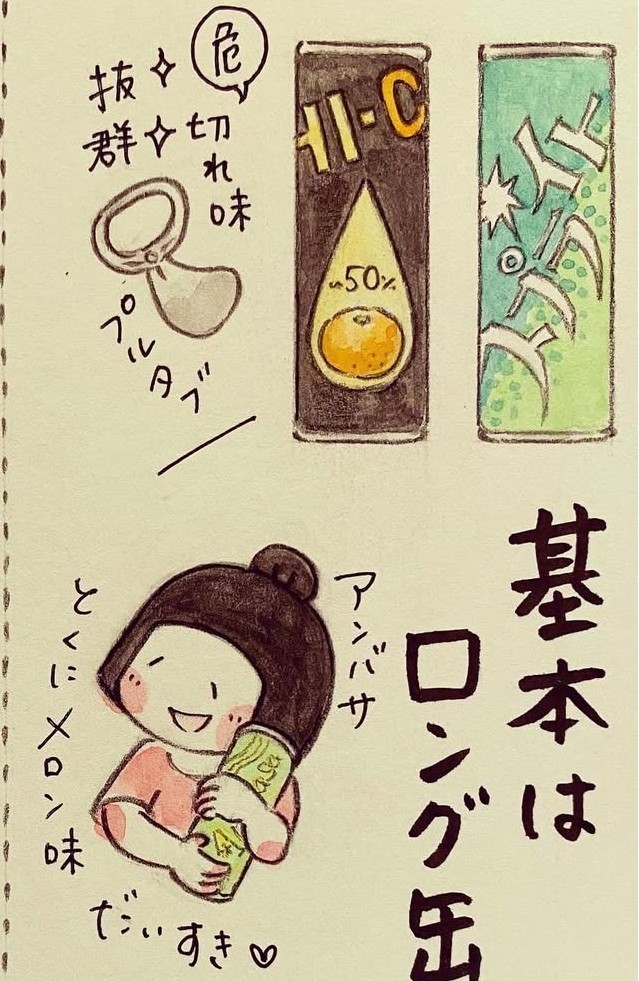 スプライト
HI-C
~50%
危
切れ味
抜群
プルタブ
基本は
ロング缶
アンバサ
asa
とくにメロン味
だいすき♡